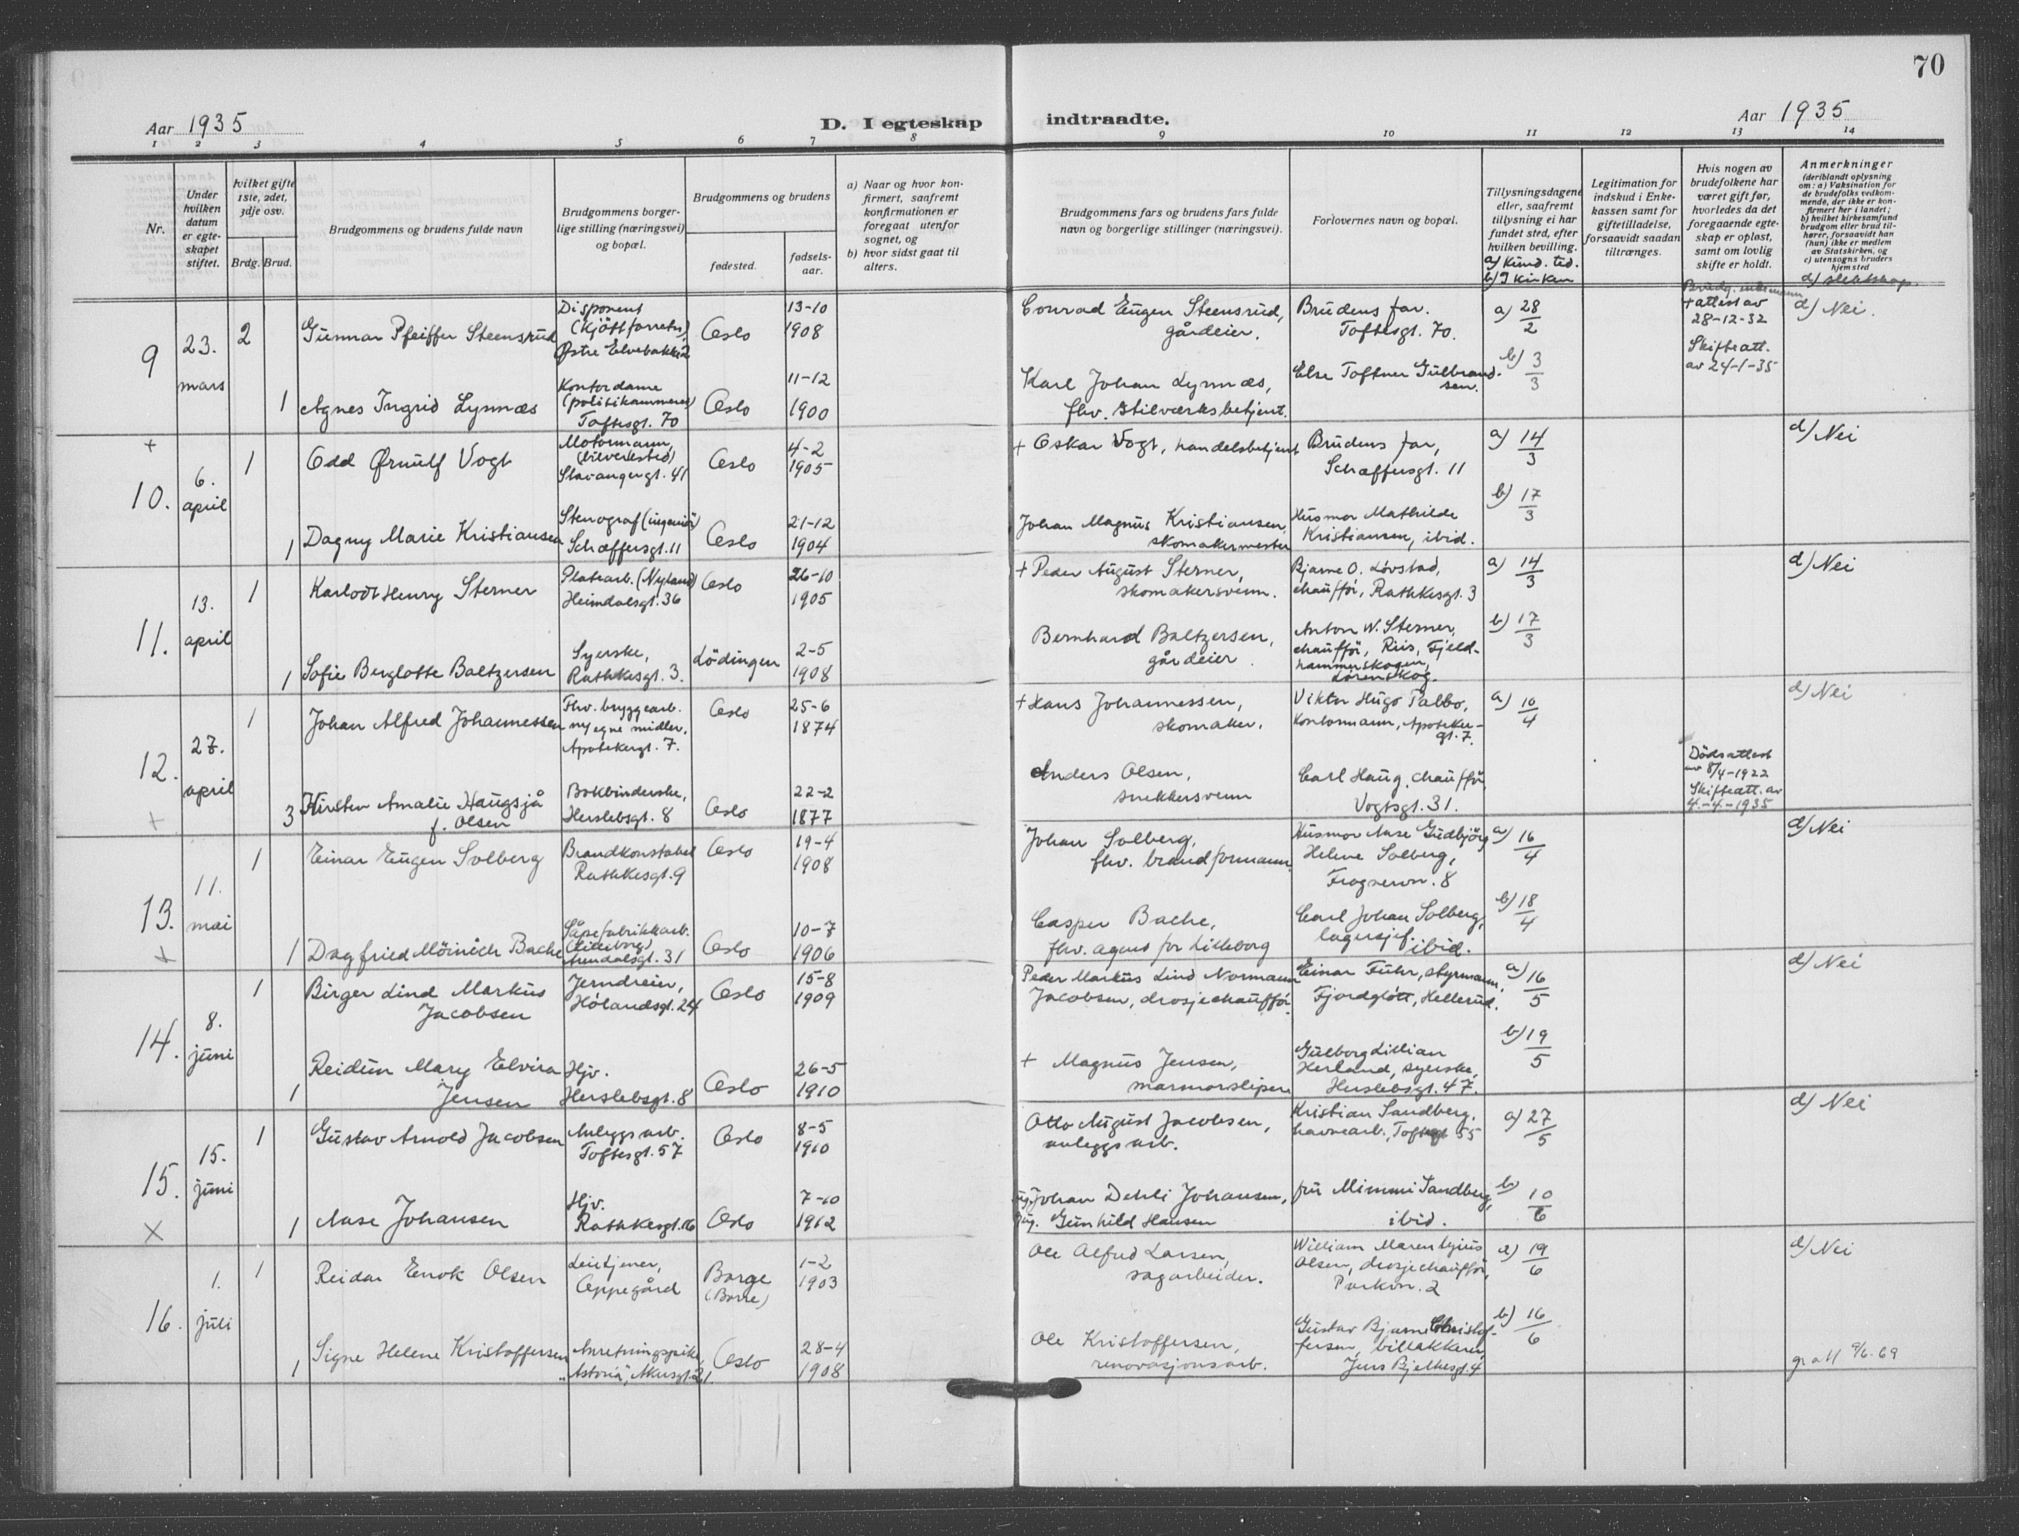 70
Aar 1935
D. I egteskap
indtraadte.
Aar 1935
1 2 3 4 5 6 7 8
9 10 11 12 13 14
Nr.
Under
hvilken
datum
er egte-
skapet
stiftet.
hvilket gifte
1ste, 2det,
3dje osv.
Brdg. Brud.
Brudgommens og brudens fulde navn
Brudgommens borger-
lige stilling (næringsvei)
og bopæl.
Brudgommens og brudens
fødested.
fødsels-
aar.
a) Naar og hvor kon-
firmert, saafremt
konfirmationen er
foregaat utenfor
sognet, og
b) hvor sidst gaat til
alters.
Brudgommens fars og brudens fars fulde
navn og borgerlige stillinger (næringsvei).
Forlovernes navn og bopæl.
Tillysningsdagene
eller, saafremt
tillysning ei har
fundet sted, efter
hvilken bevilling.
a) Kund. tid.
b) I kirken
Legitimation for
indskud i Enke-
kassen samt for
giftetilladelse,
forsaavidt saadan
tiltrænges.
Hvis nogen av
brudefolkene har
været gift før,
hvorledes da det
foregaaende egte-
skap er opløst,
samt om lovlig
skifte er holdt.
Anmerkninger
(deriblandt oplysning
om: a) Vaksination for
de brudefolks vedkom-
mende, der ikke er kon-
firmert her i landet;
b) hvilket kirkesamfund
brudgom eller brud til-
hører, forsaavidt han
(hun) ikke er medlem
av Statskirken, og
c) utensogns bruders
hjemsted
d) slektskap.
9
23.
mars
2
Gunnar Pfeiffer Steensrud
Disponent
(Kjöttforretn.)
Østre Elvebakke 2
Oslo
13-10
1908
Conrad Eugen Steensrud,
gårdeier.
Brudens far.
Toftesgt. 70.
a) 28/2
Brudg. enkemann
+ attest av
28-12-32
Skifteatt.
av 24-1-35
d) Nei.
1
Agnes Ingrid Lynnæs
Kontordame
(politikammeret)
Toftesgt. 70
Oslo
11-12
1900
Karl Johan Lynnæs,
fhv. stilverksbetjent.
Else Toftner Gulbrand-
sen.
b) 3/3
+
10.
6.
april
1
Odd Ørnulf Vogt
Motormann,
Stavangergt. 41
Oslo
4-2
1905
+ Oskar Vogt, handelsbetjent
Brudens far,
Schæffersgt. 11
a) 14/3
d) Nei
1
Dagny Marie Kristiansen
Stenograf (ingeniör)
Schæffersgt. 11
Oslo
21-12
1904
Johan Magnus Kristiansen,
skomakermester
Husmor Mathilde
Kristiansen, ibid.
b) 17/3
11.
13.
april
1
Karlodt Henry Sterner
Platearb. (Nyland)
Heimdalsgt. 36
Oslo
26-10
1905
+ Peder August Sterner,
skomakersvenn.
Bjarne O. Lövstad,
chauffør, Rathkesgt. 3
a) 14/3
d) Nei
1
Sofie Berglotte Baltzersen
Syerske,
Rathkesgt. 3.
Lödingen
2-5
1908
Bernhard Baltzersen,
gårdeier.
Anton W. Sterner,
chauffør, Riis, Fjeld-
hammerskogen,
Lørenskog.
b) 17/3
12.
27.
april
1
Johan Alfred Johannessen
Fhv. bryggearb.
nu egne midler,
Apotekergt. 7.
Oslo
25-6
1874
+ Hans Johannessen,
skomaker.
Viktor Hugo Palbo,
Kontormann, Apoteker-
gt. 7.
a) 10/4
d) Nei
+
3
Kirsten Amalie Haugsjå
f. Olsen
Bokbinderske,
Herslebsgt. 8
Oslo
22-2
1877
Anders Olsen,
snekkersvenn
Carl Haug, chauffør,
Vogtsgt. 31.
Dödsattest
av 8/4-1922
Skifteatt. av
4.-4-1935
13.
11.
mai
1
Einar Eugen Solberg
Brandkonstabel
Rathkesgt. 9
Oslo
19-4
1908
Johan Solberg,
fhv. brandformann.
Husmor Aase Gudbjörg
Helene Solberg,
Frognervn. 8
a) 16/4
d) Nei
+
1
Dagfried Möinich Bache
Såpefabrikkarb.
(Lilleborg)
Arendalsgt. 31
Oslo
10-7
1906
Casper Bache,
fhv. agent for Lilleborg
Carl Johan Solberg,
lagersjef.
ibid.
b) 18/4
14.
8.
juni
1
Birger Lind Markus
Jacobsen
Jerndreier,
Hølandsgt. 24
Oslo
15-8
1909
Peder Markus Lind Normann
Jacobsen, drosjechauffør.
Einar Fuhr, styrmann,
Fjordgløtt, Hellerud.
a) 16/5
d) Nei
1
Reidun Mary Elvira
Jensen
Hjv.
Herslebsgt. 8
Oslo
26-5
1910
+ Magnus Jensen,
marmorsliper
Gulborg Lillian
Herland, syerske,
Herslebsgt. 47.
b) 19/5
15.
15.
juni
1
Gustav Arnold Jacobsen
Anleggsarb.
Toftesgt. 57
Oslo
8-5
1910
Otto August Jacobsen,
anleggsarb.
Kristian Sandberg,
havnearb., Toftesgt 55
a) 27/5
d) Nei
x
1
Aase Johansen
Hjv.
Rathkesgt. 16
Oslo
7-10
1912
Johan Dehli Johansen,
Gunhild Hansen
fru Mimmi Sandberg,
ibid.
b) 10/6
16.
1.
juli
1
Reidar Enok Olsen
Leietjener,
Oppegård
Borge
(Borre)
1-2
1903
Ole Alfred Larsen,
sagarbeider.
William Marentzius
Olsen, drosjechauffør,
Parkvn. 2
a) 19/6
d) Nei
1
Signe Helene Kristoffersen
Anretningspike,
"Astoria", Akersgt. 21.
Oslo
28-4
1908
Ole Kristoffersen,
renovasjonsarb.
Gustav Bjarne Christof-
fersen, billakkerer,
Jens Bjelkesgt. 4
b) 16/6
9/6.69